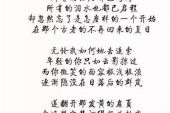 所有的泪水也都已启程
却忽然忘了是怎么样的一个开始
在那个古老的不再回来的夏日
无论我如何地去追索
年轻的你只如云影掠过
而你微笑的面容极浅极淡
逐渐隐没在日落后的群岚
遂翻开那发黄的扉页